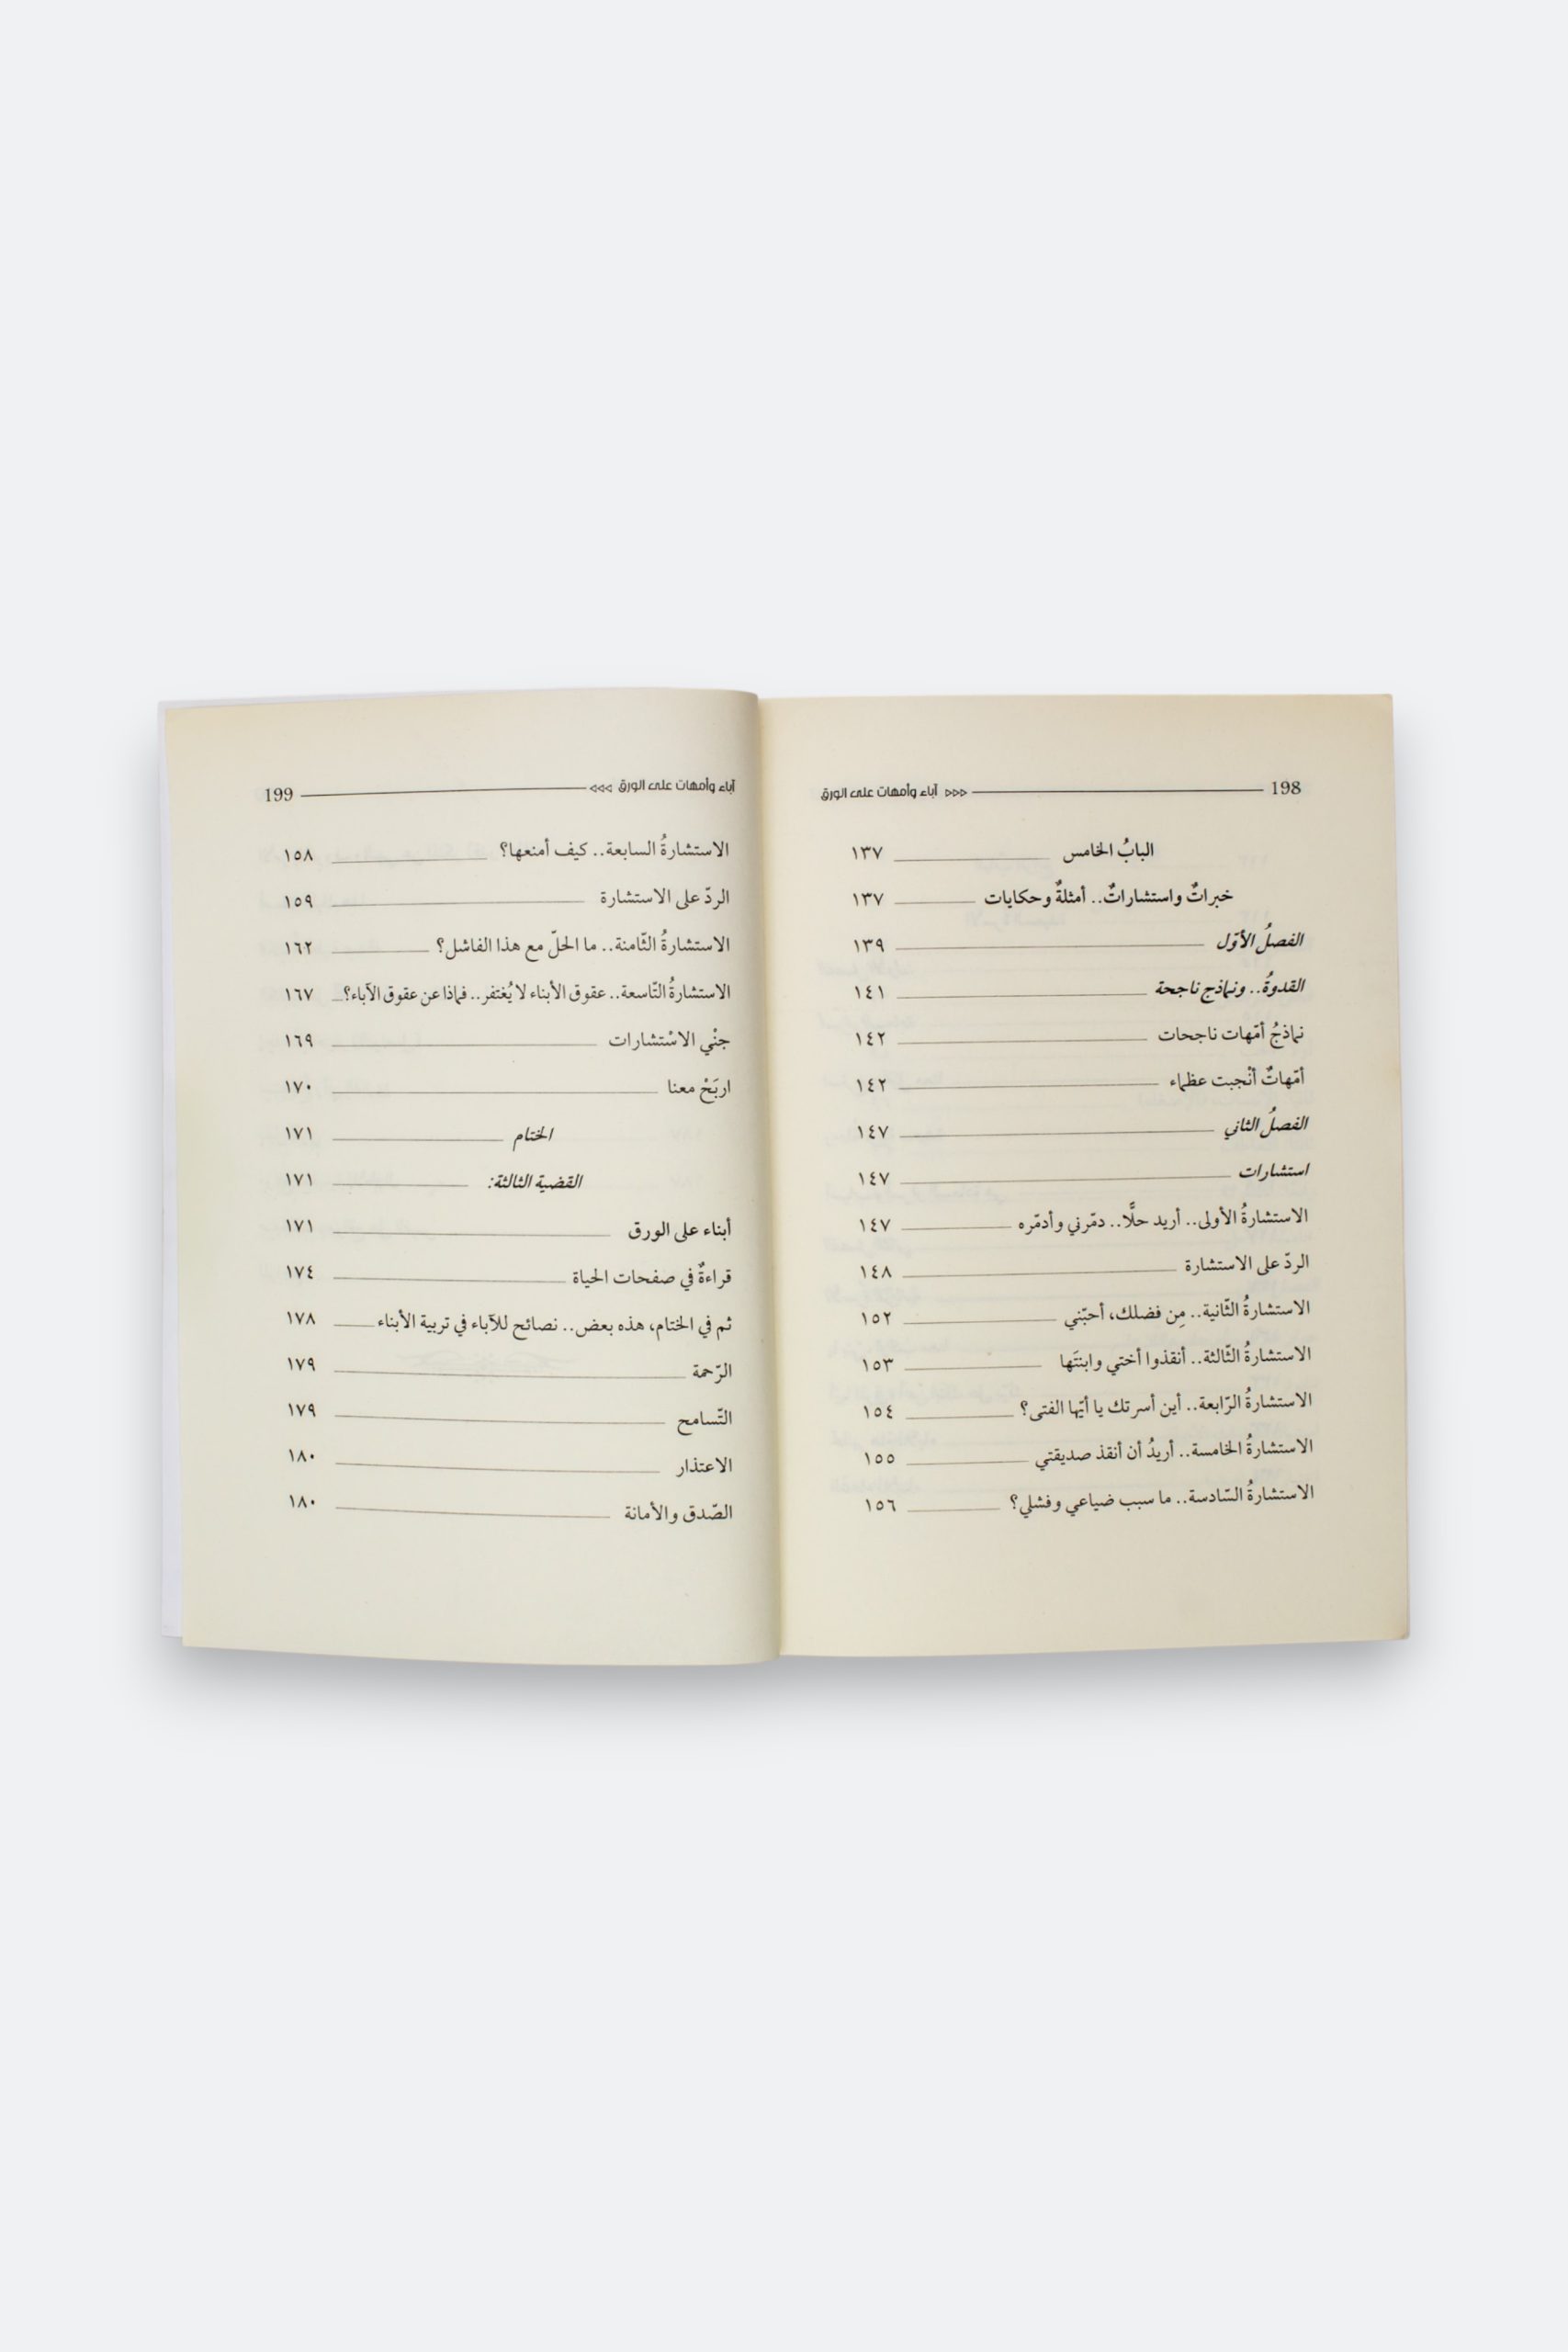 198 آباء وأمهات على الورق
البابُ الخامس ١٣٧
خبراتٌ واستشاراتٌ.. أمثلةٌ وحكايات ١٣٧
الفصلُ الأوّل ١٣٩
القدوةُ.. ونماذج ناجحة ١٤١
نماذجُ أمّهات ناجحات ١٤٢
أمّهاتٌ أنْجبت عظماء ١٤٢
الفصلُ الثاني ١٤٧
استشارات ١٤٧
الاستشارةُ الأولى.. أريد حلًّا.. دمّرني وأدمّره ١٤٧
الردّ على الاستشارة ١٤٨
الاستشارةُ الثّانية.. مِن فضلك، أحبّني ١٥٢
الاستشارةُ الثّالثة.. أنقذوا أختي وابنتَها ١٥٣
الاستشارةُ الرّابعة.. أين أسرتك يا أيّها الفتى؟ ١٥٤
الاستشارةُ الخامسة.. أريدُ أن أنقذ صديقتي ١٥٥
الاستشارةُ السّادسة.. ما سبب ضياعي وفشلي؟ ١٥٦
آباء وأمهات على الورق 199
الاستشارةُ السابعة.. كيف أمنعها؟ ١٥٨
الردّ على الاستشارة ١٥٩
الاستشارةُ الثّامنة.. ما الحلّ مع هذا الفاشل؟ ١٦٢
الاستشارةُ التّاسعة.. عقوق الأبناء لا يُغتفر.. فماذا عن عقوق الآباء؟ ١٦٧
جنْي الاسْتشارات ١٦٩
اربَحْ معنا ١٧٠
الختام ١٧١
القضية الثالثة: ١٧١
أبناء على الورق ١٧١
قراءةٌ في صفحات الحياة ١٧٤
ثم في الختام، هذه بعض.. نصائح للآباء في تربية الأبناء ١٧٨
الرّحمة ١٧٩
التّسامح ١٧٩
الاعتذار ١٨٠
الصّدق والأمانة ١٨٠